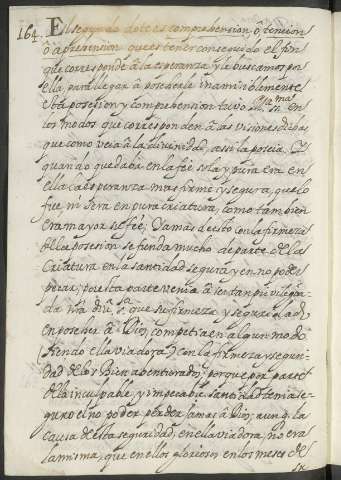 164. El segundo dote es comprehension, ô tencion
ô aprehension que es tener conseguido el fin
que corresponde â la esperanza y le buscamos por
ella, para llegar â poseherle inamisiblemente
esta posesion y comprehension tuvo M.ª SS.ma en
los modos que corresponden â las visiones dichas
que como veia â la divinidad, assi la poseia. Y
quando quedaba en la feê sola y pura era en
ella la esperanza mas firme y segura, que lo
fue, ni sera en pura criatura; como tambien
era mayor su feê; Y a mas de esto con la firmeza
de la posesion se funda mucho de parte de la
criatura en la santidad segura y en no poder
pecar; por esta parte venia â ser tan privilegia-
da nra. divª. Sª. que su firmeza y seguridad
en poseher â Dios, competia en algun modo
(siendo ella viadora) con la firmeza y seguri-
dad de los Bienabenturados; porque por parte
de la inculpable, y impecable santidad tenia se-
guro el no poder perder jamas â Dios; aunq. la
causa de esta seguridad, en ella viadora, no era
la misma, que en ellos gloriosos en los meses de
su